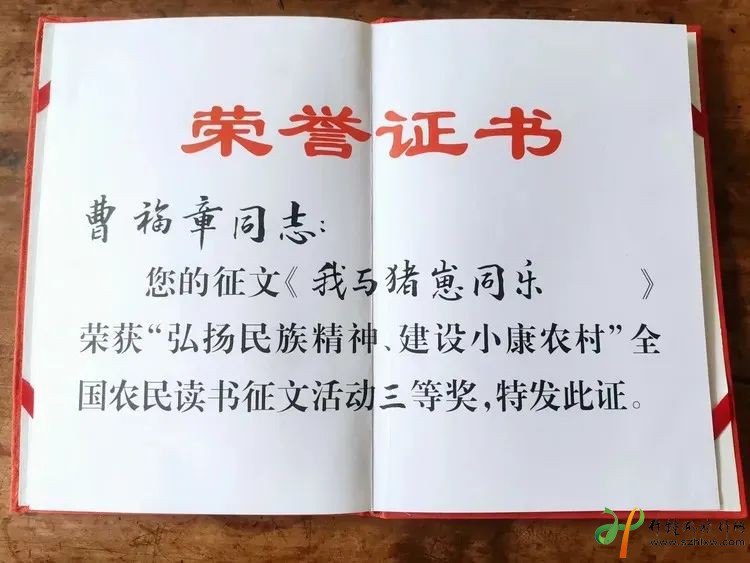 荣誉证书
曹福章同志:
您的征文《我与猪崽同乐》
荣获“弘扬民族精神、建设小康农村”全
国农民读书征文活动三等奖,特发此证。
www.szhlxw.com